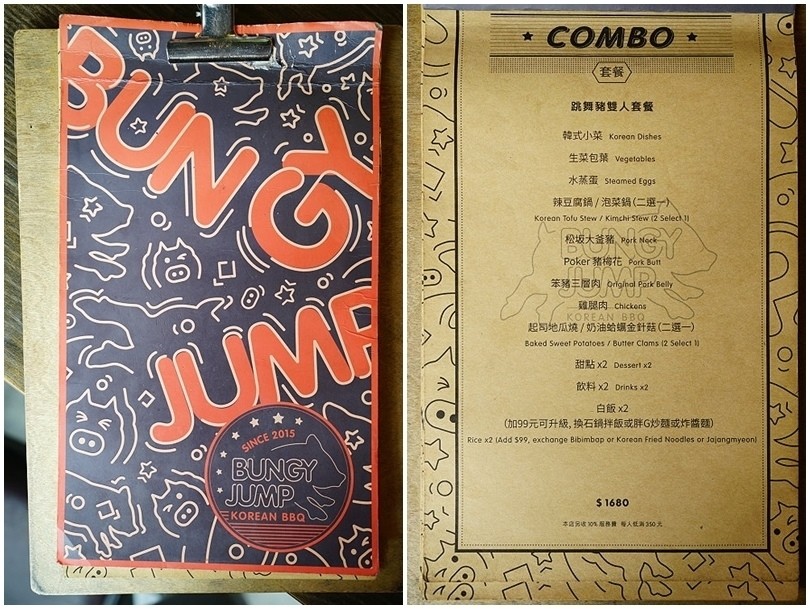 BUNGY
JUMP
SINCE 2015
BUNGY
JUMP
KOREAN BBQ
COMBO
套餐
跳舞豬雙人套餐
韓式小菜 Korean Dishes
生菜包葉 Vegetables
水蒸蛋 Steamed Eggs
辣豆腐鍋 / 泡菜鍋 (二選一)
Korean Tofu Stew / Kimchi Stew (2 Select 1)
松坂大釜豬 Pork Neck
Poker 豬梅花 Pork Butt
笨豬三層肉 Original Pork Belly
雞腿肉 Chickens
起司地瓜燒 / 奶油蛤蠣金針菇 (二選一)
Baked Sweet Potatoes / Butter Clams (2 Select 1)
甜點 x2 Dessert x2
飲料 x2 Drinks x2
白飯 x2
(加99元可升級, 換石鍋拌飯或胖G炒麵或炸醬麵)
Rice x2 (Add $99, exchange Bibimbap or Korean Fried Noodles or Jajangmyeon)
BUNGY
JUMP
KOREAN BBQ
$ 1680
本店另收 10% 服務費 每人低消 350 元